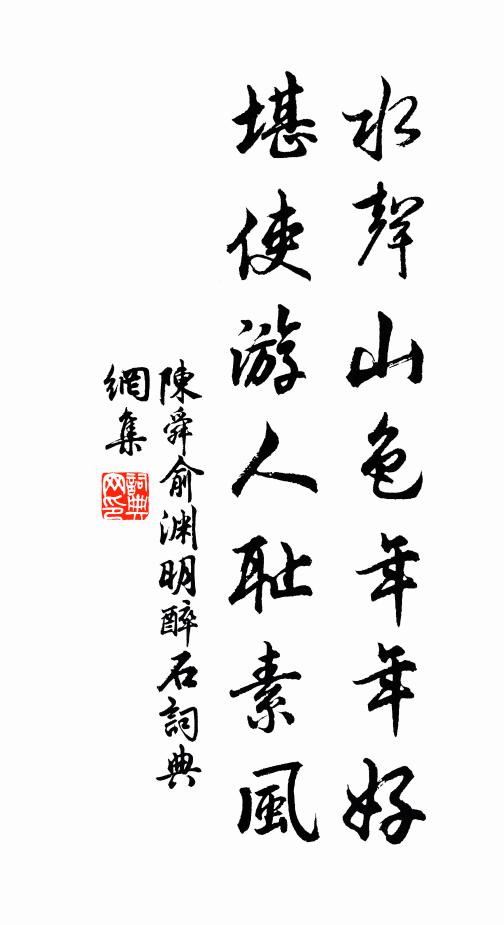 水聲山色年年好
堪使游人耻素風
陳舜俞渊明醉石詞典
網集
詞典
网印